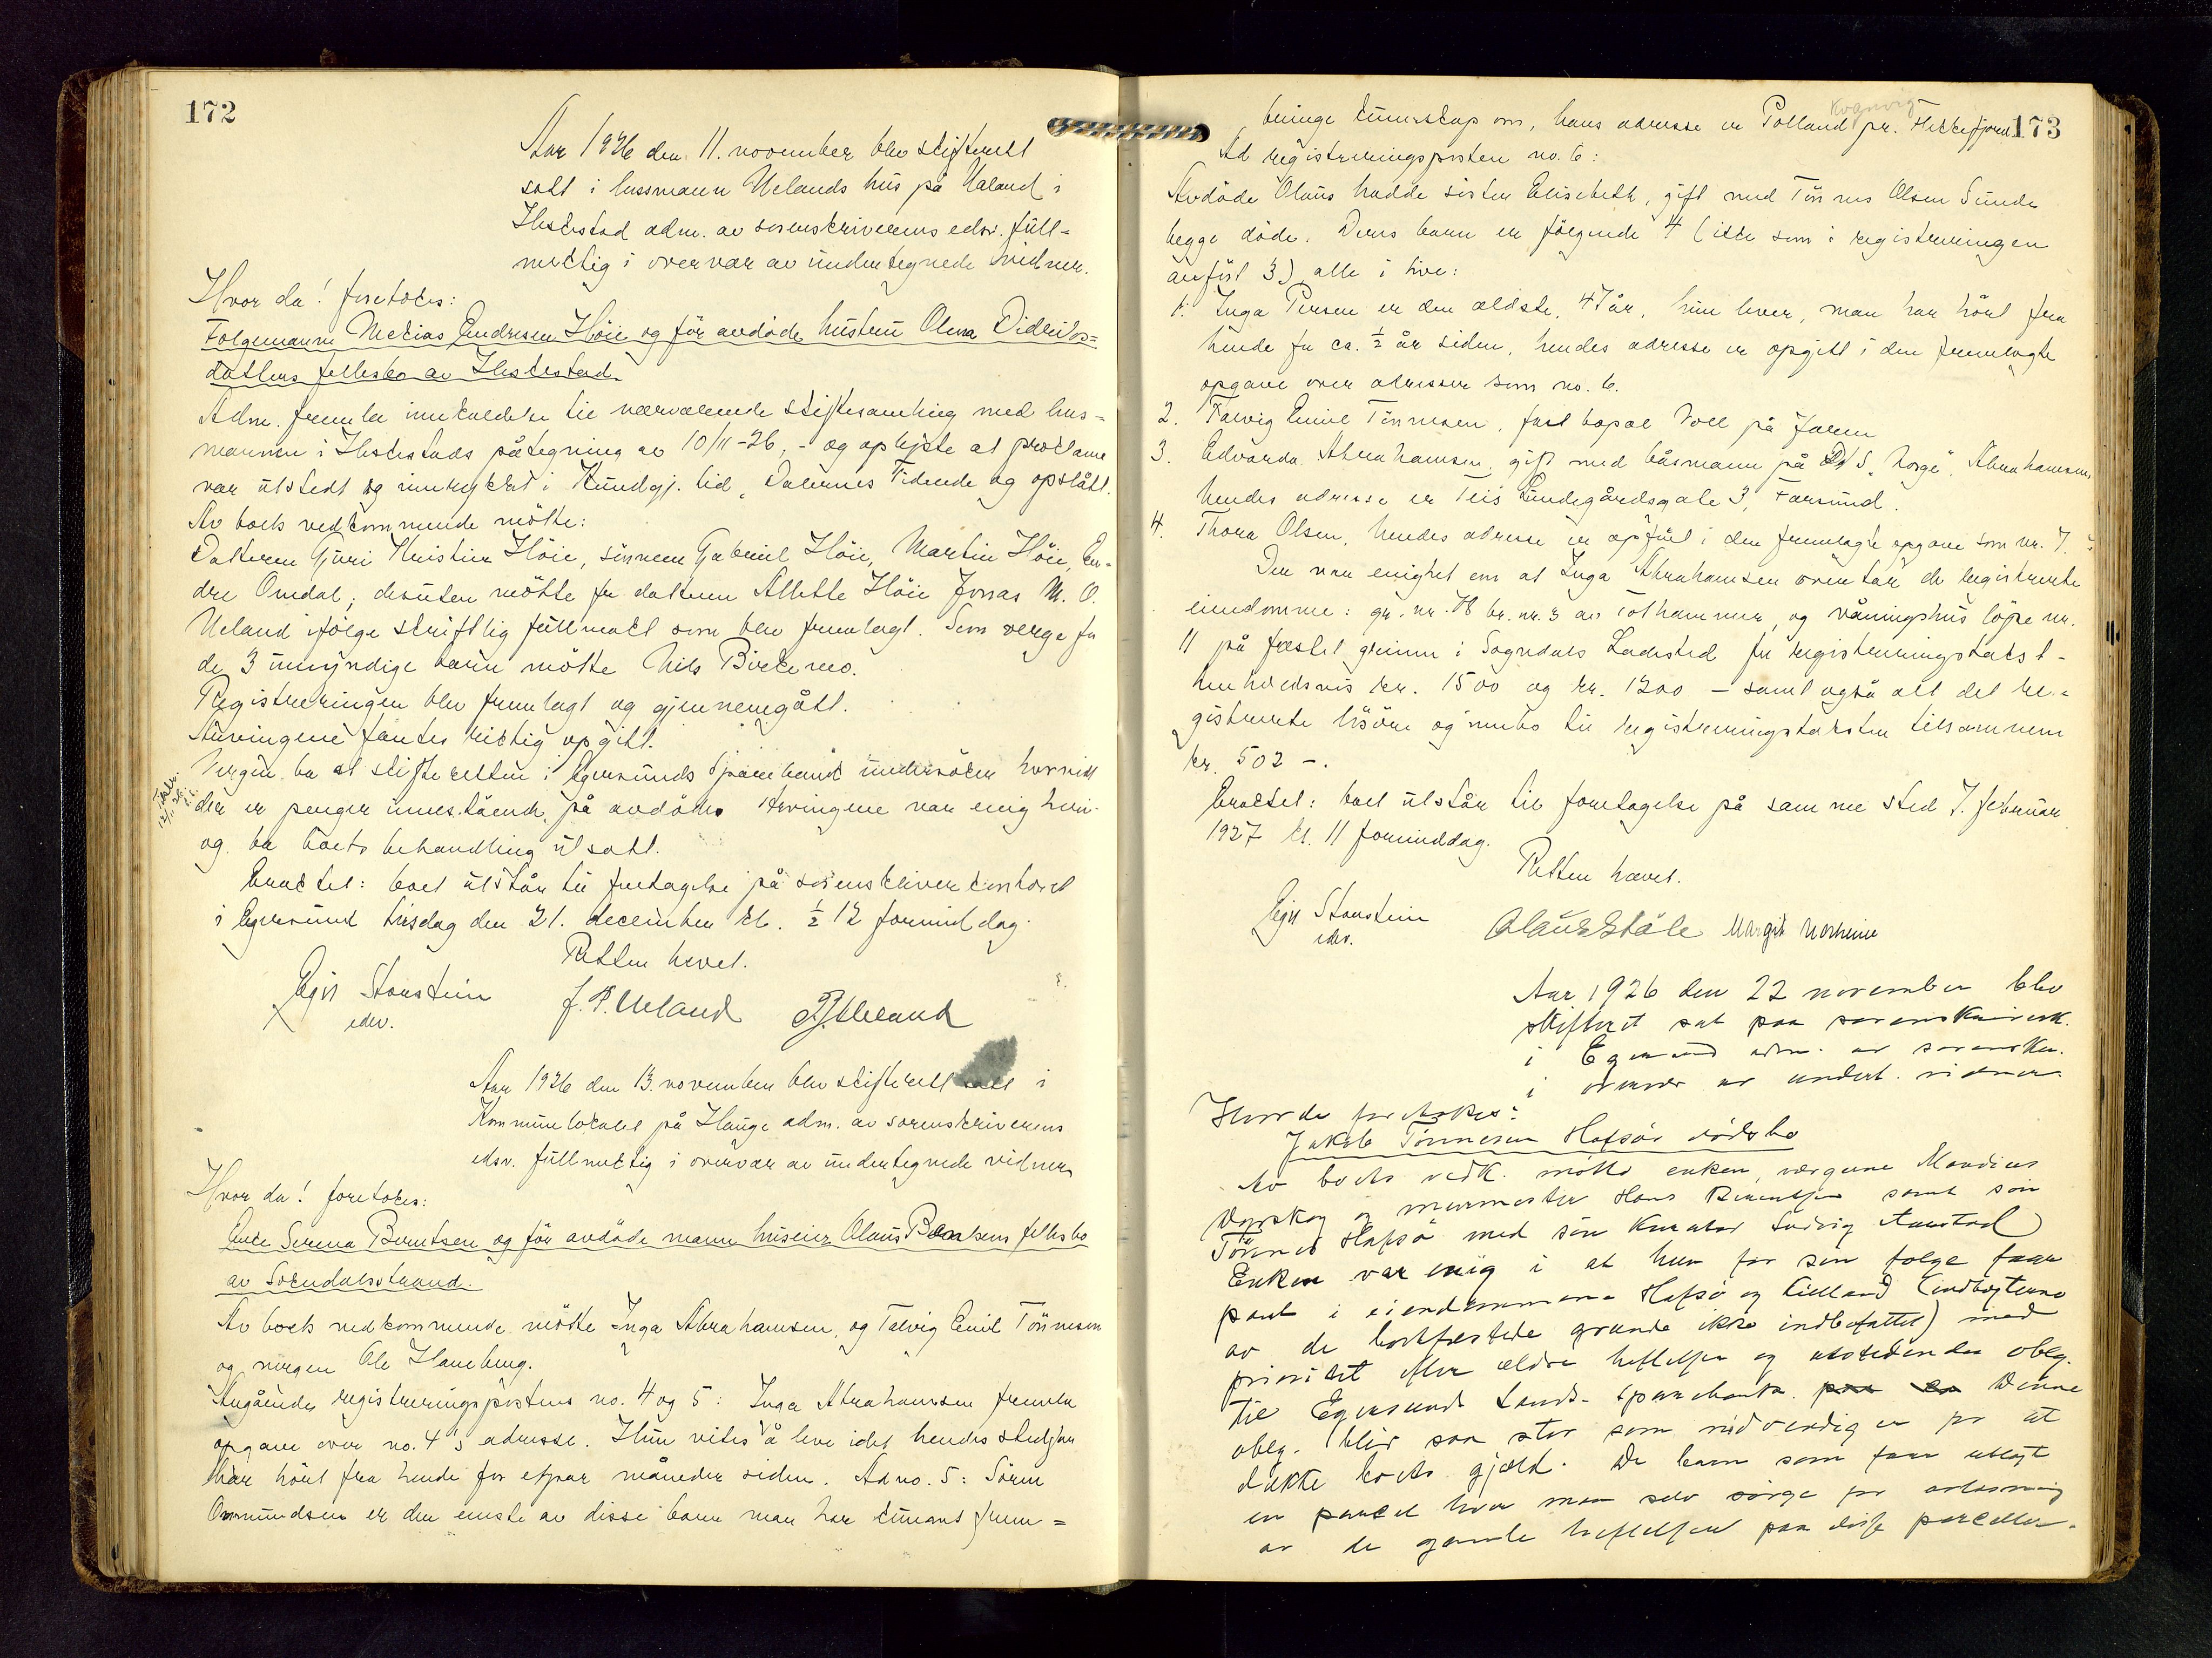 172
Aar 1926 den 11. november blev skifterett
satt i lensmann Uelands hus på Ualand i
Heskestad adm. av sorenskriverens edsv. full-
mektig i overvær av undertegnede vidner.
Hvor da! foretokes:
Følgemann Mekias Endresen Höie og før avdöde hustru Olena Didriks-
datters fellesbo av Heskestad.
Adm. fremla innkaldelse til nærværende skiftesamling med lens-
mannen i Heskestads påtegning av 10/11-26, - og oplyste at proclama
var utstedt og innrykket i Kundgj. tid, Dalernes Tidende og opslått.
Av boets vedkommende mötte:
Datteren Guri Kristine Höie, sönnene Gabriel Höie, Martin Höie, En-
dre Omdal; desuten mötte for datteren Allette Höie Jonas M. O.
Ueland ifölge skriftlig fullmakt som blev fremlagt. Som verge for
de 3 umyndige barn mötte Nils Birkemo.
Registreringen blev fremlagt og gjennemgått.
Arvingene fantes riktig opgitt.
Vergen ba at skifteretten i Egersunds Sparebank undersöker hvorvidt
der er penger innestående på avdöde. Arvingene var enig heri
og ba boets behandling utsatt.
12/11 26
Eractet: boet utstår til foretagelse på sorenskriverkontoret
i Egersund tirsdag den 21. december kl. ½ 12 formiddag.
Retten hevet.
Egil Stanstein
edsv.
J. P. Ueland
Aar 1926 den 13. november blev skifterett satt i
Kommunelokalet på Hauge adm. av sorenskriverens
edsv. fullmektig i overvær av undertegnede vidner
Hvor da! foretokes:
Enke Serena Berntsen og før avdöde mann huseier Olaus Berntsens fellesbo
av Sokndalsstrand.
Av boets vedkommende mötte Inga Abrahamsen, og Talvig Emil Tönnesen
og vergen Ole Haneberg.
Angående registreringspostens no. 4 og 5: Inga Abrahamsen fremla
opgave over no. 4's adresse. Hun vites å leve idet hendes stedfar
har hört fra hende for et par måneder siden. Ad no. 5: Sören
Ommundsen er den eneste av disse barn man har kunnet frem-
173
bringe kunnskap om, hans adresse er Polland pr. Flekkefjord.
Ad registreringsposten no. 6:
Avdöde Olaus hadde söster Elisebeth, gift med Tönnes Olsen Sunde
begge döde. Deres barn er fölgende 4 (ikke som i registreringen
anfört 3) alle i live:
1. Inga Persen er den ældste, 47 år, hun lever, man har hört fra
hende for ca. ½ år siden, hendes adresse er opgitt i den fremlagte
opgave over adresser som no. 6.
2. Talvig Emil Tönnesen, fast bopæl Voll på Jæren
3. Edvarda Abrahamsen, gift med båsmann på D/S „Norge“, Abrahamsen,
hendes adresse er Teis Lundegårdsgate 3, Farsund.
4. Thora Olsen, hendes adresse er opfört i den fremlagte opgave som nr. 7.
Der var enighet om at Inga Abrahamsen overtar de registrerte
eiendomme: gr. nr. br. nr. 3 av Tothammer, og våningshus löpe nr.
11 på festet grunn i Sogndals Ladested for registreringstakst -
henholdsvis kr. 1500 og kr. 1200 - samt også alt det re-
gistrerte lösöre og innbo til registreringstaksten tilsammen
kr. 502 -.
Eractet: boet utstår til foretagelse på samme sted 7. februar
1927 kl. 11 formiddag.
Retten hævet.
Egil Stanstein
edsv.
Olaus Ståle Margit Norheim
Aar 1926 den 22 november blev
skifteret sat paa sorenskriverk.
i Egersund adm. av sorenskr.
i overvær av undert. vidner
Hvor da foretokes:
Jakob Tönnesen Hafsös dödsbo
Av boets vedk. mötte enken, vergene Mandius
og murmester Hans Berentsen samt sön
Tönnes Hafsö med sin kurator Ludvig Aanstad
Enken var enig i at hun for sin følge faar
pant i eiendommene Hafsö og Lilland (indbygterne
av de bortfæstede grunde ikke indbefattet) med
prioritet efter ældre heftelser og utstedende oblg.
til Egersunds Lands. sparebank. Denne
oblg. blir saa stor som nödvendig er for at
dække boets gjæld. De barn som faar utlagt
en parcel hver maa selv sörge for avlösning
av de gamle heftelser paa disse parceller.